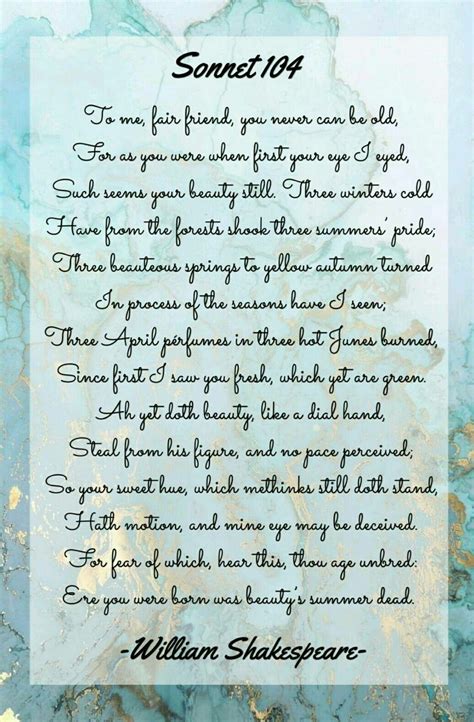 Sonnet 104
To me, fair friend, you never can be old,
For as you were when first your eye I eyed,
Such seems your beauty still. Three winters cold
Have from the forests shook three summers' pride;
Three beauteous springs to yellow autumn turned
In process of the seasons have I seen;
Three April pérfumes in three hot Junes burned,
Since first I saw you fresh, which yet are green.
Ah yet doth beauty, like a dial hand,
Steal from his figure, and no pace perceived;
So your sweet hue, which methinks still doth stand,
Hath motion, and mine eye may be deceived.
For fear of which, hear this, thou age unbred:
Ere you were born was beauty's summer dead.
-William Shakespeare-